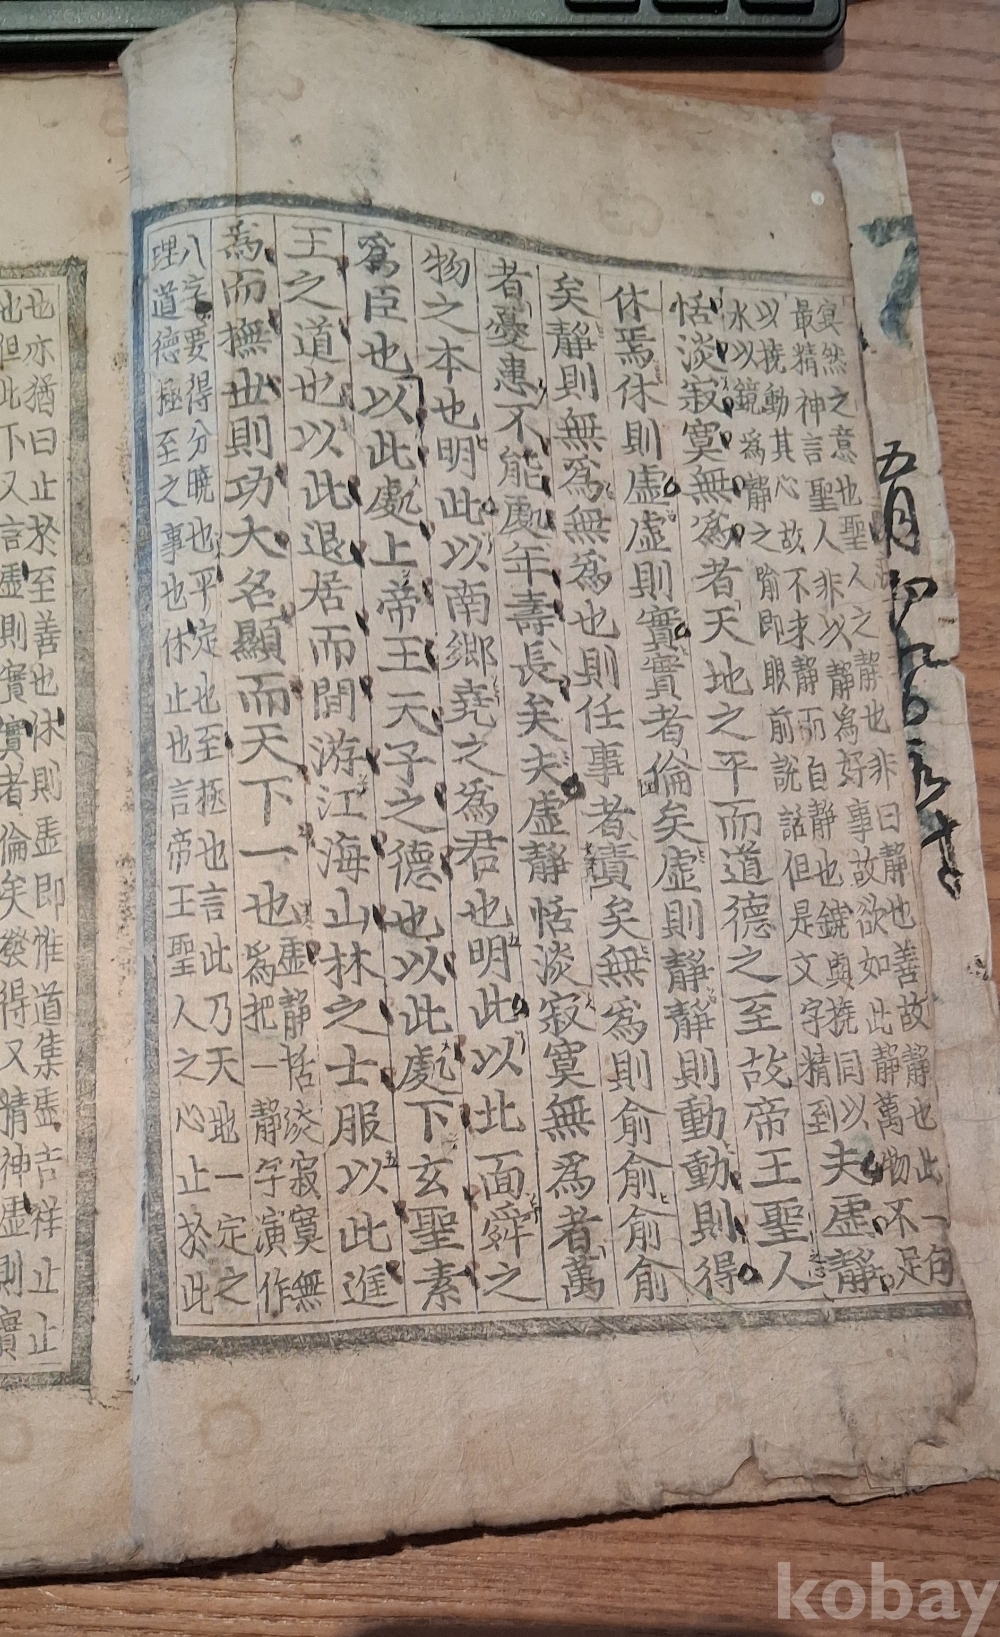 冥然之意也聖人之靜也非曰靜也善故靜也此一句
最精神言聖人非以靜為好事故欲如此靜萬物不足
以撓動其心故不来靜而自靜也鐃與撓同以
水以鏡為靜之喻即眼前說話但是文字精到
夫虛靜
恬淡寂寞無為者天地之平而道德之至故帝王聖人
休焉休則虛虛則實實者倫矣虛則靜靜則動動則得
矣靜則無為無為也則任事者責矣無為則俞俞俞俞
者憂患不能處年壽長矣夫虛靜恬淡寂寞無為者萬
物之本也明此以南鄉堯之為君也明此以北面舜之
為臣也以此處上帝王天子之德也以此處下玄聖素
王之道也以此退居而間游江海山林之士服以此進
為而撫世則功大名顯而天下一也
虛靜恬淡寂寞無
為把一靜字演作
八字要得分曉也平定也至極也言此乃天地一定之
理道德極至之事也休止也言帝王聖人之心止於此
也亦猶曰止於至善也休則虛即惟道集虛吉祥止止
也但此下又言虛則實實者倫矣發得又精神虛則實
五月
kobay